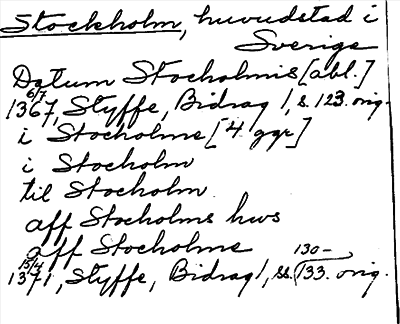 Stockholm, huvudstad i
Sverige
Datum Stocholmis [abl.]
6/7
1367, Styffe, Bidrag 1, s. 123. orig.
i Stocholme [4 ggr]
i Stocholm
til Stocholm
aff Stocholms hws
aff Stocholme
15/4 130-
1371, Styffe, Bidrag 1, ss. 133. orig.